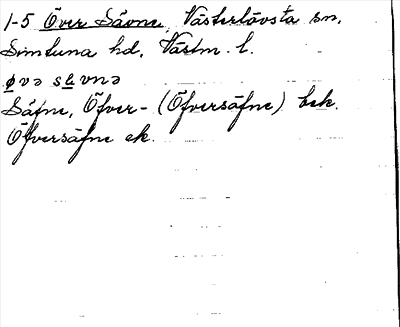 1-5 Över Sävne, Västerlövsta sn.
Simtuna hd, Västm. l.
øvə savnə
Säfne, Öfver- (Öfversäfne) bek.
Öfversäfne ek.